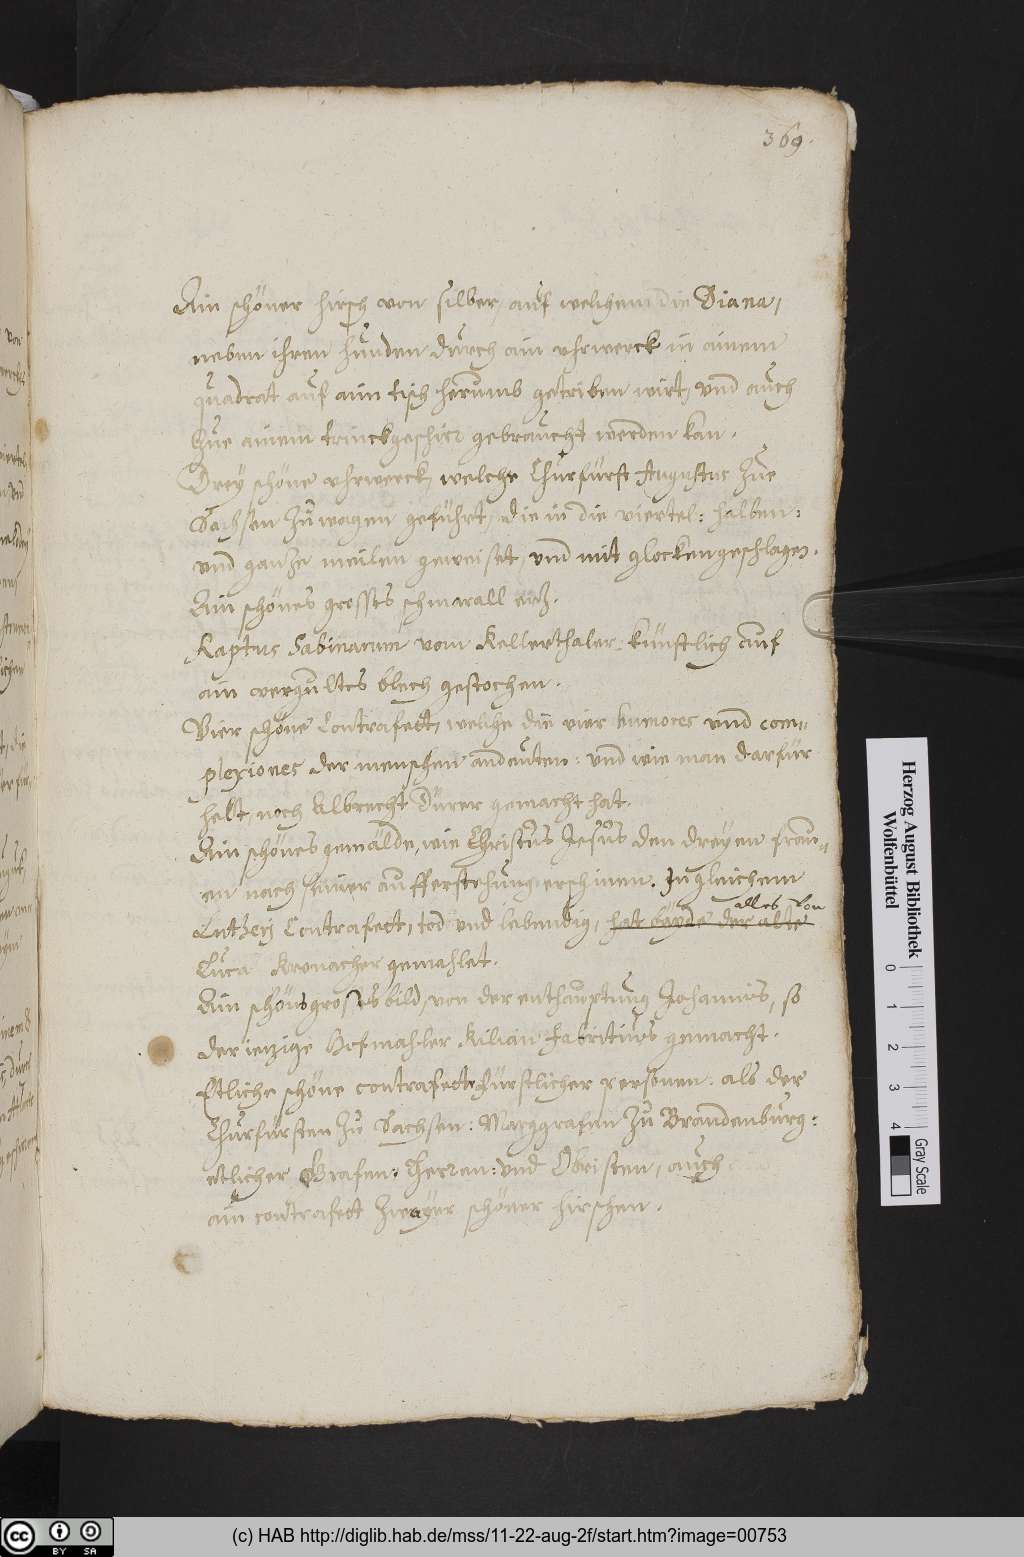 369.
Ain schöner hirsch von silber, auf welchem die Diana,
neben ihren hunden durch ain uhrwerck in ainem
quadrat auf ain tisch herumb getriben wirt, vnd auch
zue ainem trinckgeschirr gebraucht werden kan.
Drey schöne uhrwerck, welche Churfürst Augustus zue
Sachsen zu wagen geführt, die in die viertel: halben:
vnd ganze meilen geweiset, vnd mit glocken geschlagen.
Ain schönes grosses schmarall erz.
Raptus Sabinarum vom Kellerthaler künstlich auf
ain vergultes blech gestochen.
Vier schöne Contrafett, welche die vier humores vnd com-
plexiones der menschen andeuten: vnd wie man darfür
helt, noch Albrecht Dürer gemacht hat.
Ain schönes gemälde, wie Christus Jesus den dreyen frau-
en nach seiner aufferstehung erschinen. In gleichem
alles von
Lutherj Contrafett, tod vnd lebendig, hat bayde der alte
Luca Kronacher gemahlet.
Ain schönes grosses bild, von der enthauptung Johannis, so
der iezige Hofmahler Kilian Fabritius gemacht.
Etliche schöne contrafett fürstlicher personen: als der
Churfürsten zu Sachsen: Marggrafen zu Brandenburg:
etlicher Grafen: Herren: vnd Obristen, auch
ain contrafett zweyer schöner hirschen.
Herzog August Bibliothek
Wolfenbüttel
0 1 2 3 4
Gray Scale
(c) HAB http://diglib.hab.de/mss/11-22-aug-2f/start.htm?image=00753
cc BY SA